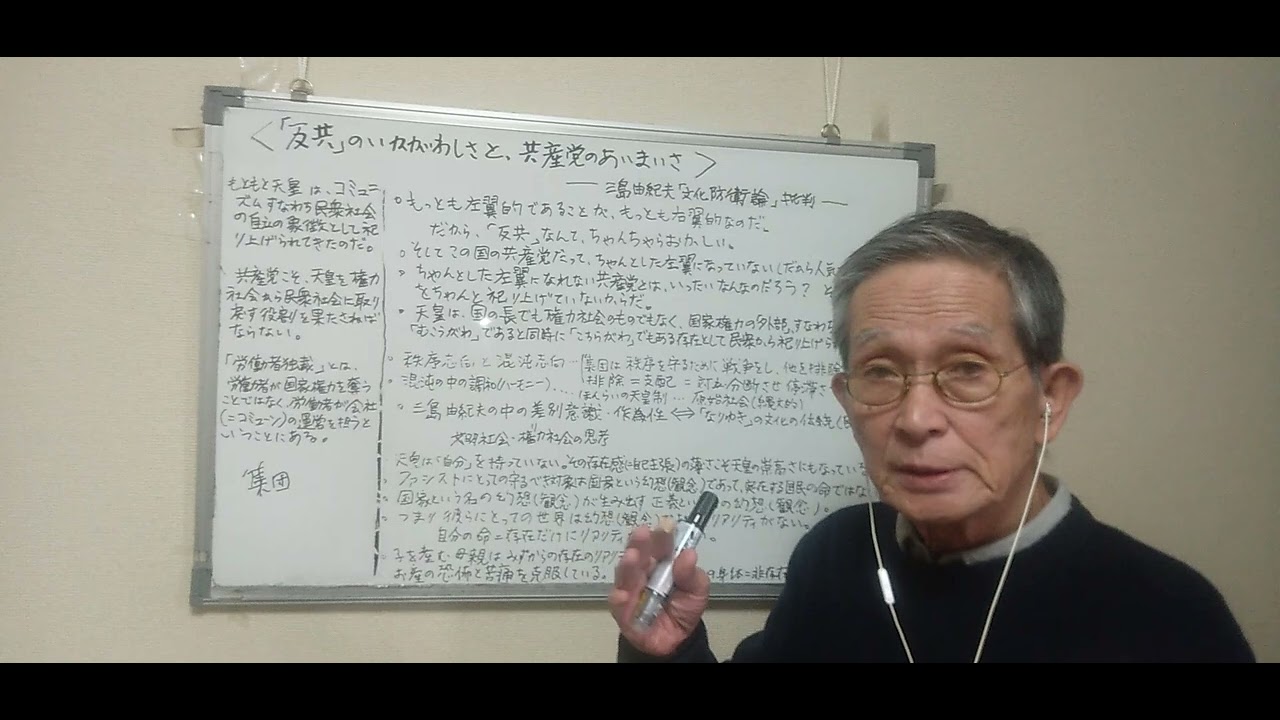 <「反共」のいかがわしさと、共産党のあいまいさ>
── 三島由紀夫「文化防衛論」批判 ──
もともと天皇は、コミュニ
ズムすなわち民衆社会
の自立の象徴として祀
り上げられてきたのだ。
共産党こそ、天皇を権力
社会から民衆社会に取り
戻す役割を果たさねば
ならない。
「労働者独裁」とは、
労働者が国家権力を奪う
ことではなく、労働者が会社
(=コミューン)の運営を担うと
いうことにある。
集団
○もっとも左翼的であることが、もっとも右翼的なのだ。
だから、「反共」なんて、ちゃんちゃらおかしい。
○そしてこの国の共産党だって、ちゃんとした左翼になっていない(だから人気
○ちゃんとした左翼になれない共産党とは、いったいなんなのだろう?
をちゃんと祀り上げていないからだ。
・天皇は、国の長でも権力社会のものでもなく、国家権力の「外部」、すなわち
「むこうがわ」であると同時に「こちらがわ」でもある存在として民衆から祀り上げら
○秩序志向と混沌志向…集団は秩序を守るために戦争をし、他を排除
排除=支配=対立分断させ停滞さ
○混沌の中の調和(ハーモニー)、…ほんらいの天皇制…原始社会(縄文的)
○三島由紀夫の中の差別意識・作為性⇔「なりゆき」の文化の伝統
文明社会・権力社会の思考
天皇は「自分」を持っていない。その存在感(=自己主張)の薄さこそ天皇の崇高さにもなっている
・ファシストにとっての守るべき対象は国家という幻想(観念)であって、実在する国民の命ではな
・国家という名の幻想(観念)が生み出す正義という の幻想(観念)。
・つまり彼らにとっての世界は幻想(観念) リアリティがない。
自分の命=存在だけにリアリティ
・子を産む母親はみずからの存在のリアリ
お産の恐怖と苦痛を克服している。 身体=非存在